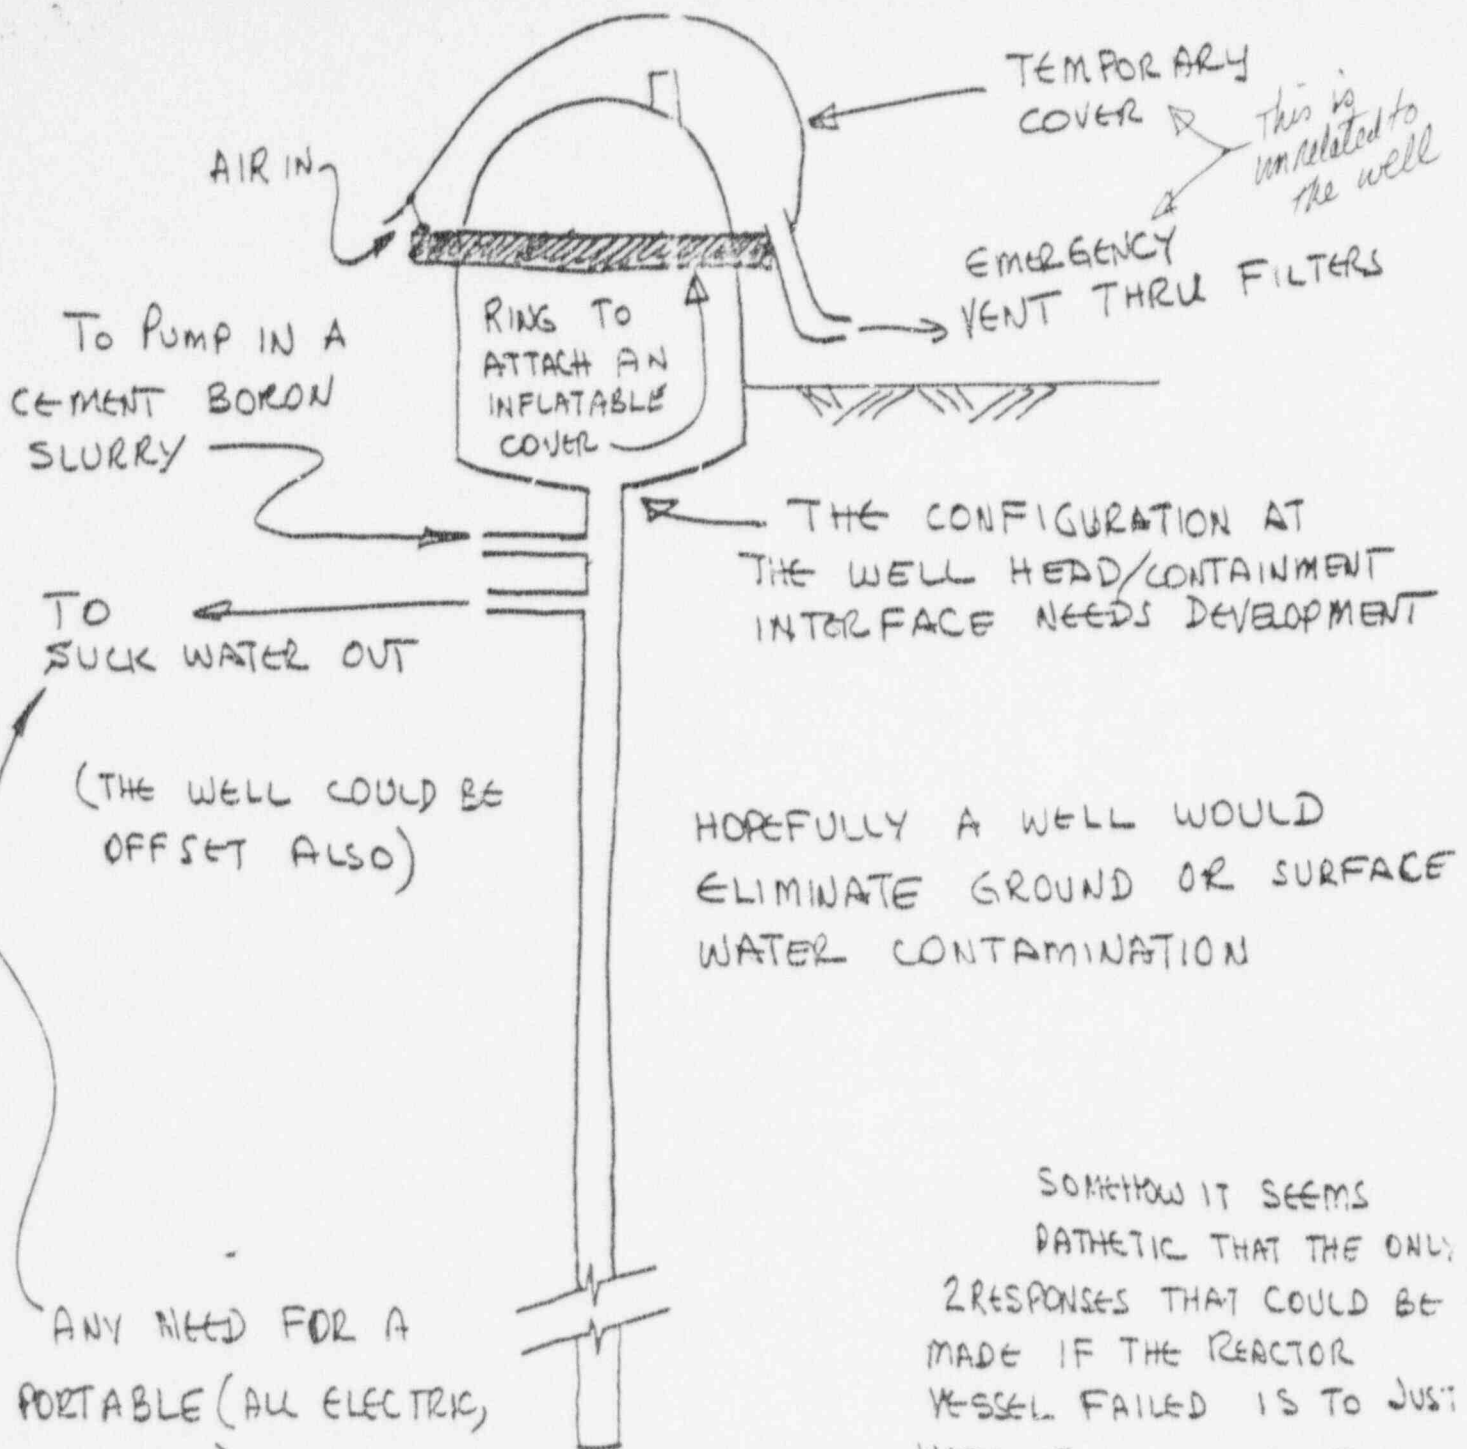 TEMPORARY
COVER
This is
unrelated to
the well
AIR IN
EMERGENCY
VENT THRU FILTERS
RING TO
ATTACH AN
INFLATABLE
COVER
TO PUMP IN A
CEMENT BORON
SLURRY
THE CONFIGURATION AT
THE WELL HEAD/CONTAINMENT
INTERFACE NEEDS DEVELOPMENT
TO
SUCK WATER OUT
(THE WELL COULD BE
OFFSET ALSO)
HOPEFULLY A WELL WOULD
ELIMINATE GROUND OR SURFACE
WATER CONTAMINATION
SOMEHOW IT SEEMS
PATHETIC THAT THE ONLY
2 RESPONSES THAT COULD BE
MADE IF THE REACTOR
VESSEL FAILED IS TO JUST
ANY NEED FOR A
PORTABLE (ALL ELECTRIC,